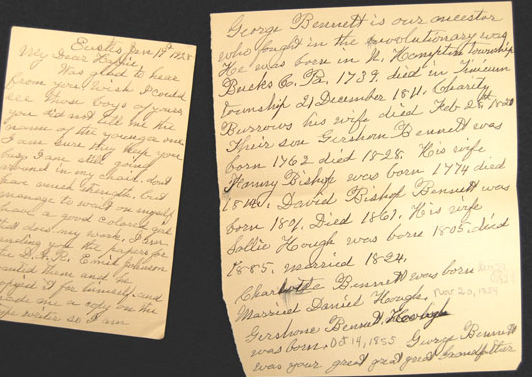 Eustis Jan 19th 1938
My Dear
Was glad to hear
from you wish I could
see those boys of yours,
you did not tell me the
name of the younger one
I am sure they keep you
busy. I am still going
around in my chair. don't
have much strength, but
manage to wait on myself
have a good colored girl
that does my work, I am
sending you the papers for
the D.A.R. Johnson
wanted them and he
copied I for himself and
made me a copy on the
type writer so I am
George Bennett is our ancestor
who fought in the revolutionary was
He was born in N. Hampton township
Bucks Co. Pa. 1739 died in Tinicum
township 21 December 1811. Charity
Burrows his wife died Feb 28th 1820
Their son Gershom Bennett was
born 1762 died 1828. His wife
Bishop was born 1774 died
David Bishop Bennett was
born 1801. Died 1861. His wife
Sallie Hough was born 1805. died
1885. married 1824.
Charlotte Bennett was born
Married Daniel Hough. Nov 20, 1854
Gershone Bennett Hough
was born Oct 14, 1855 George Bennett
was your great great great Grandfather